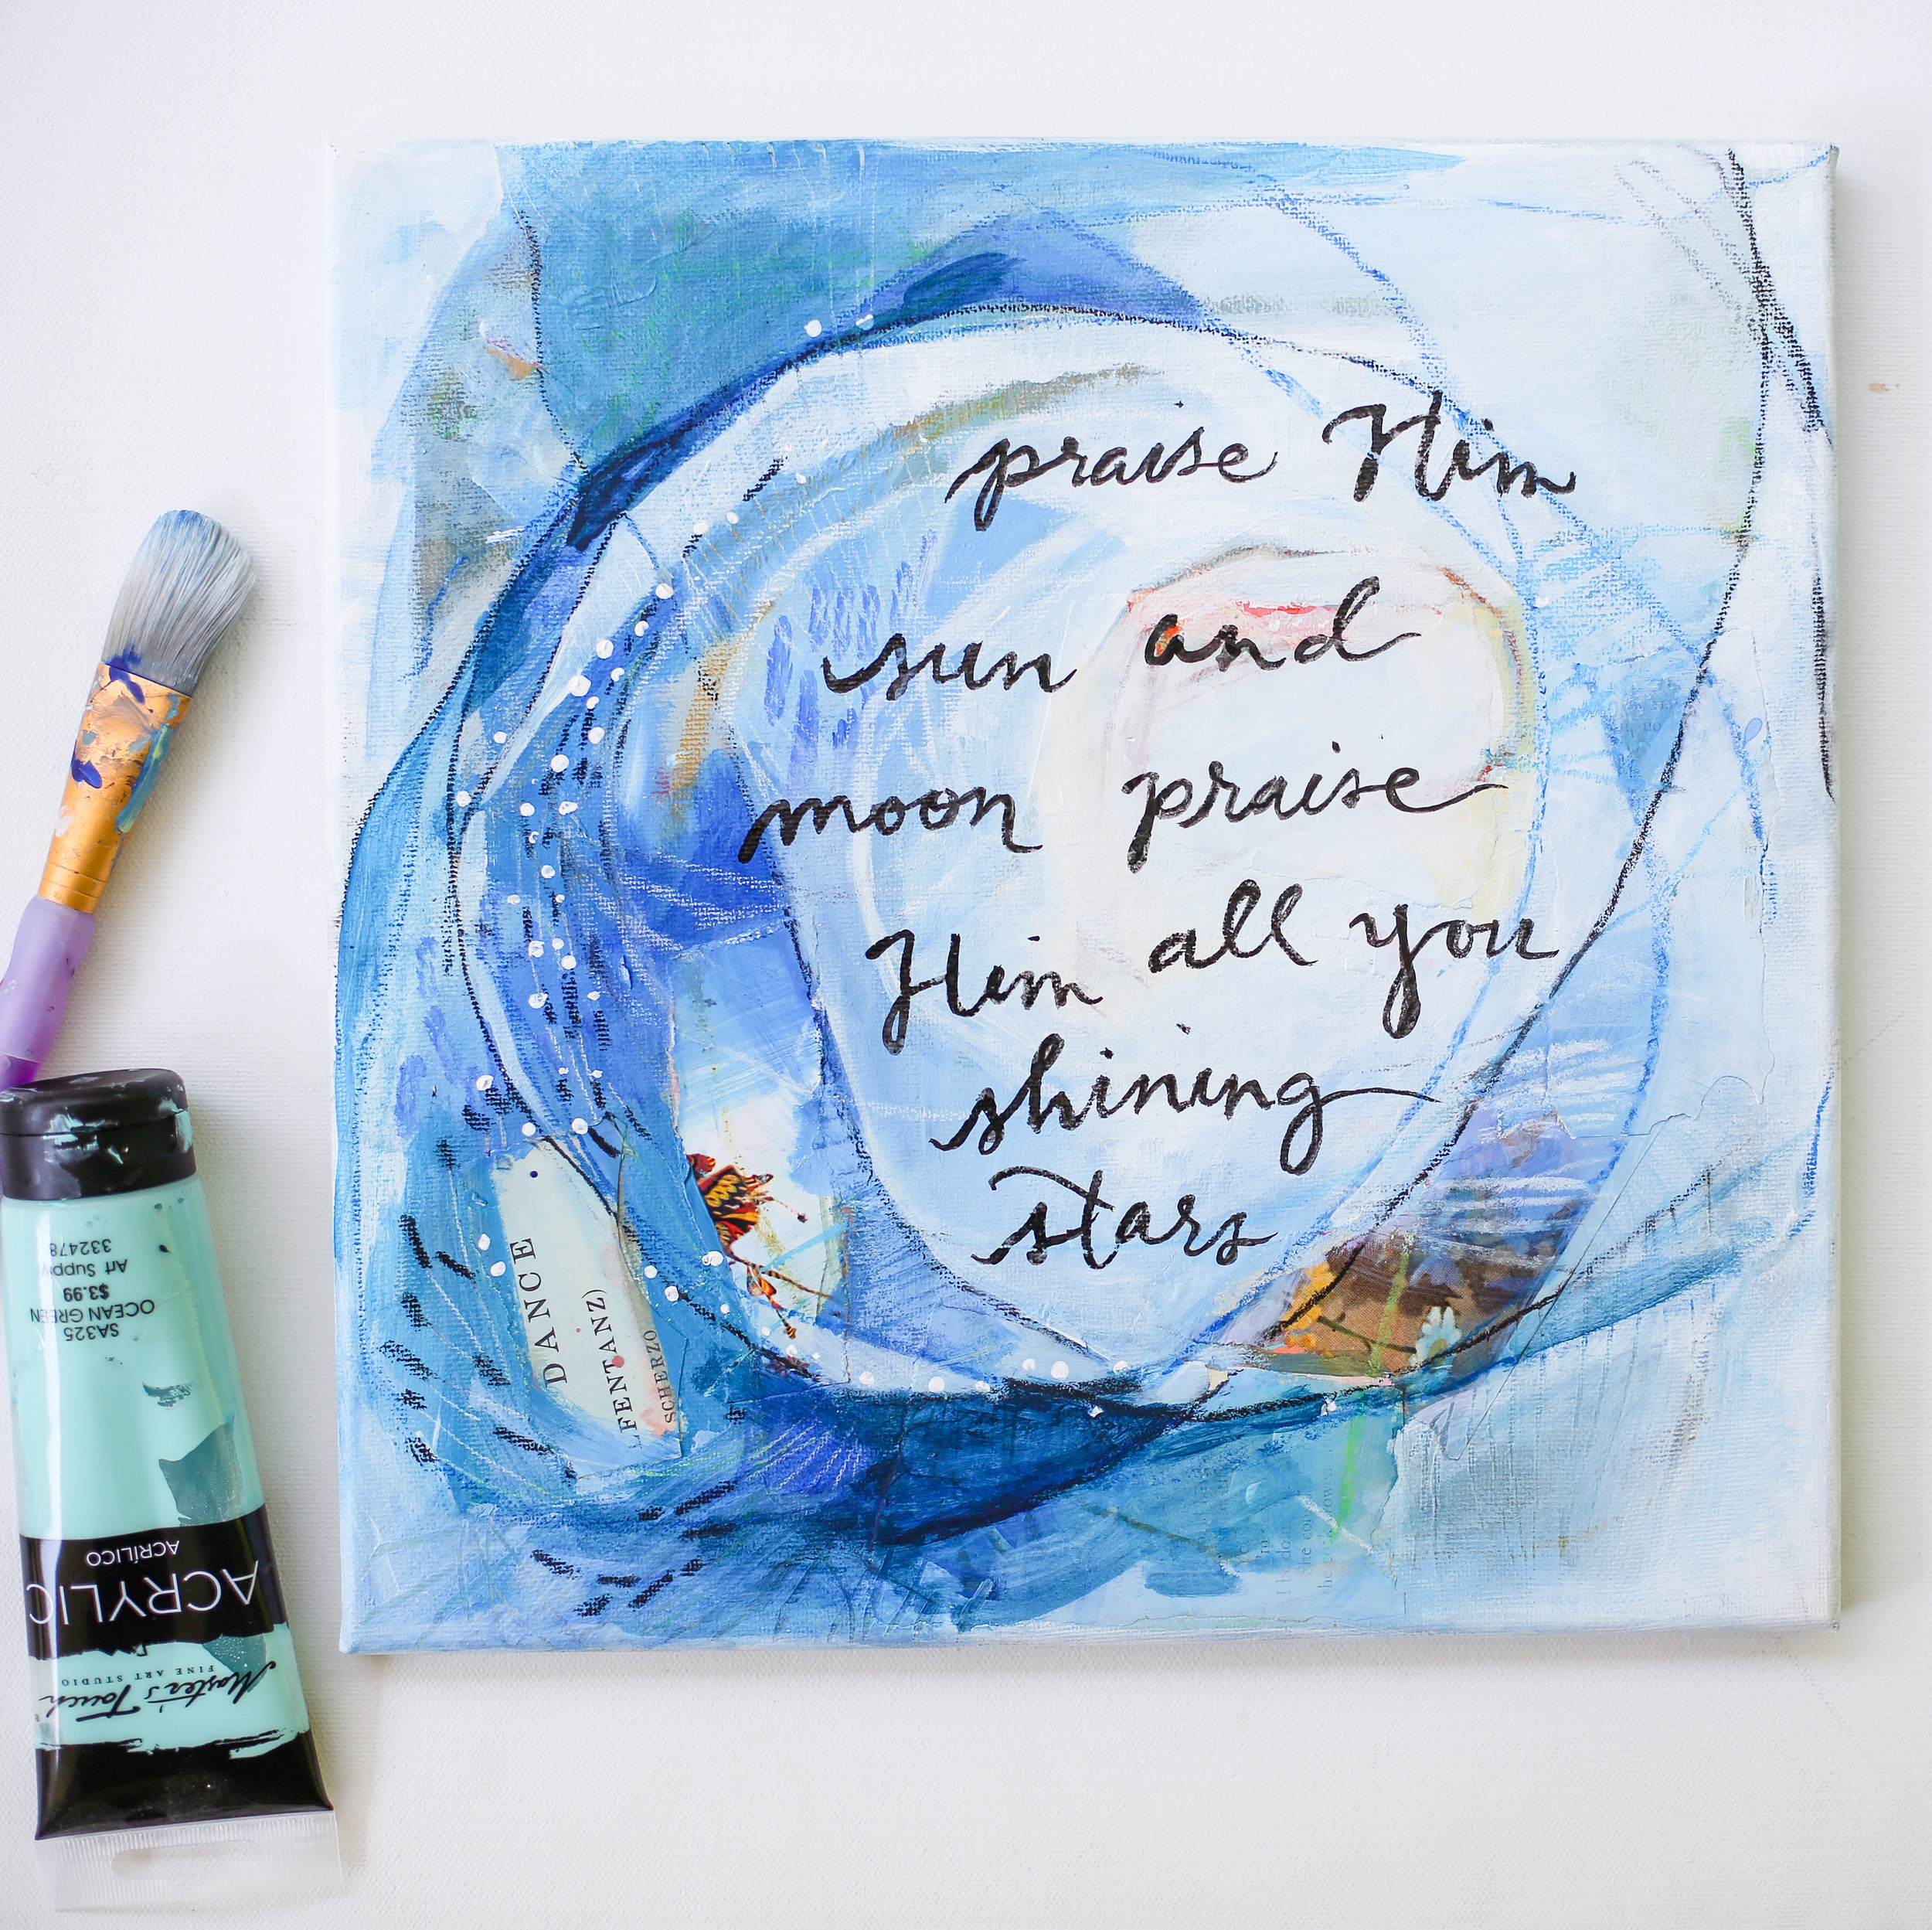 praise Him
sun and
moon praise
Him all you
shining
stars
DANCE
FENTANZ)
SCHERZO
SA325
OCEAN GREEN
$3.99
Art Supply
332478
ACRYLIC
ACRÍLICO
Master's Touch
FINE ART STUDIO